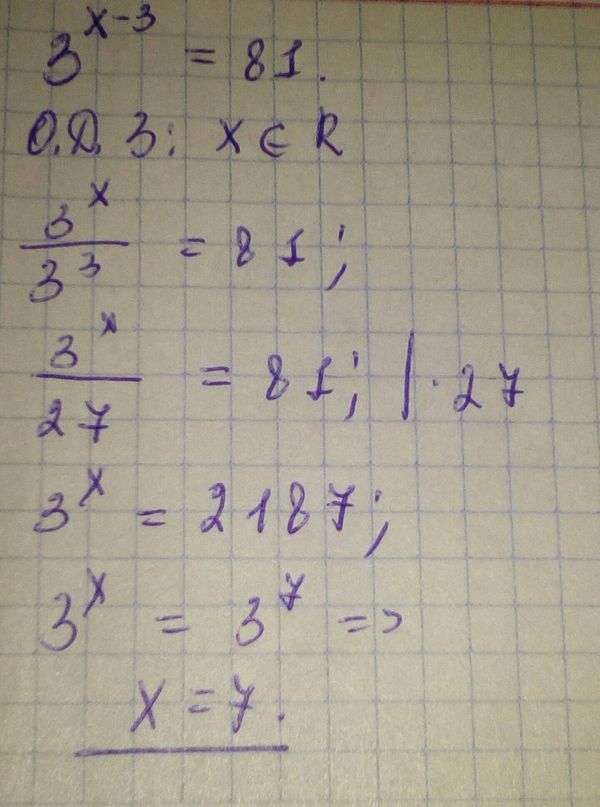 3^{x-3} = 81.
О.Д.З: x ∈ R
\frac{3^x}{3^3} = 81;
\frac{3^x}{27} = 81; | · 27
3^x = 2187;
3^x = 3^7 =>
x = 7.